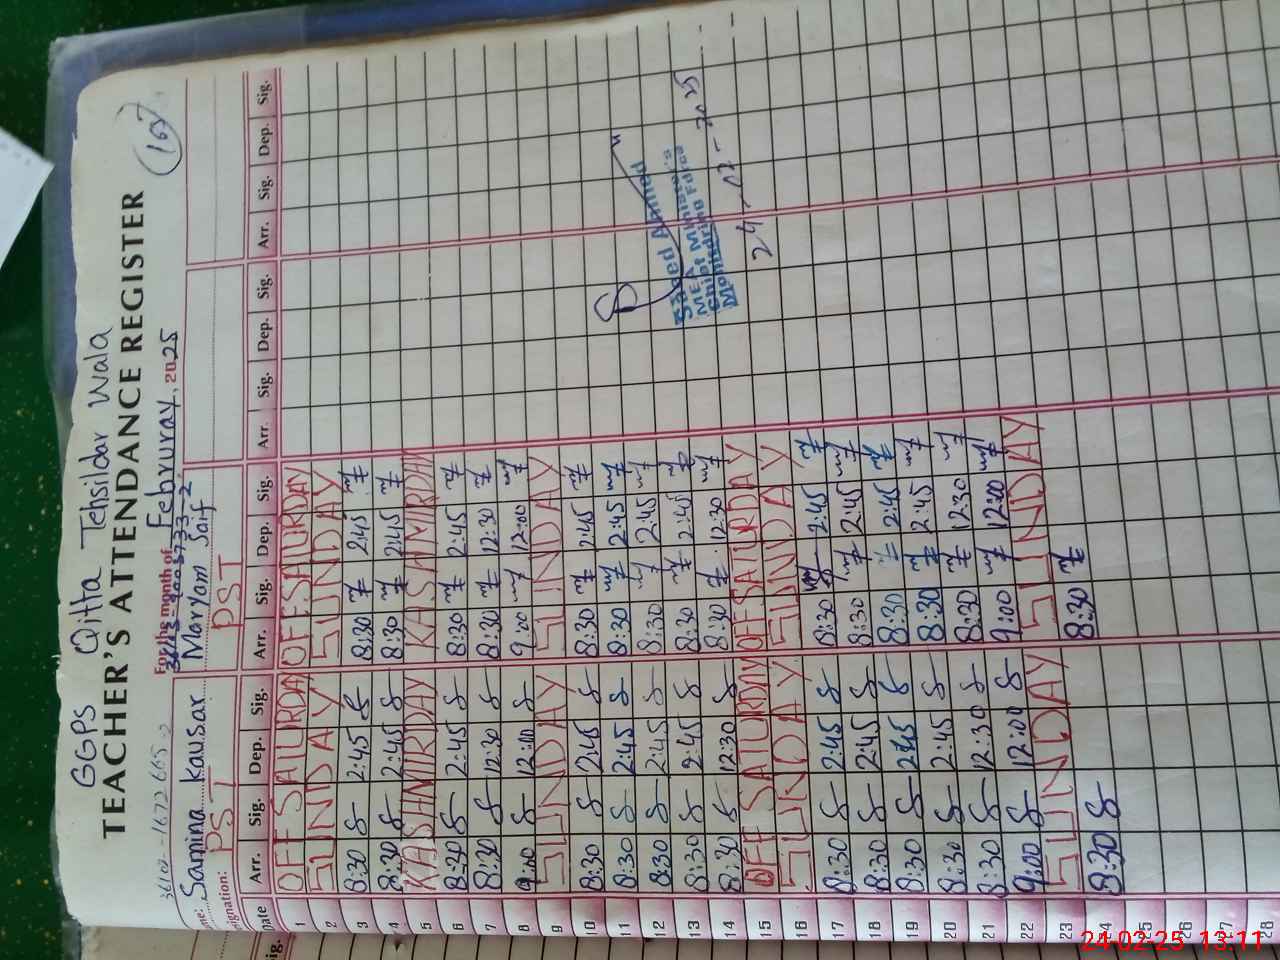 GGPS Qitta Tehsildar Wala
TEACHER'S ATTENDANCE REGISTER
For the month of Februray, 2025
167
Samina Kausar Maryam Saif
ignation: PST PST
Date Arr. Sig. Dep. Sig. Arr. Sig. Dep. Sig. Arr. Sig. Dep. Sig. Arr. Sig. Dep. Sig.
1 OFF SATURDAY OFF SATURDAY
2 SUNDAY SUNDAY
3 8:30 2:45 8:30 2:45
4 8:30 2:45 8:30 2:45
5 KASHMIR DAY KASHMIR DAY
6 8:30 2:45 8:30 2:45
7 8:30 12:30 8:30 12:30
8 9:00 12:00 9:00 12:00
9 SUNDAY SUNDAY
10 8:30 2:45 8:30 2:45
11 8:30 2:45 8:30 2:45
12 8:30 2:45 8:30 2:45
13 8:30 2:45 8:30 2:45
14 8:30 12:30 8:30 12:30
15 OFF SATURDAY OFF SATURDAY
16 SUNDAY SUNDAY
17 8:30 2:45 8:30 2:45
18 8:30 2:45 8:30 2:45
19 8:30 2:45 8:30 2:45
20 8:30 2:45 8:30 2:45
21 8:30 12:30 8:30 12:30
22 9:00 12:00 9:00 12:00
23 SUNDAY SUNDAY
24 8:30 8:30
25
26
27
28
Saeed Ahmed
MEA
Chief Minister's
Monitoring Force
24-02-2025
24-02-25 13:11